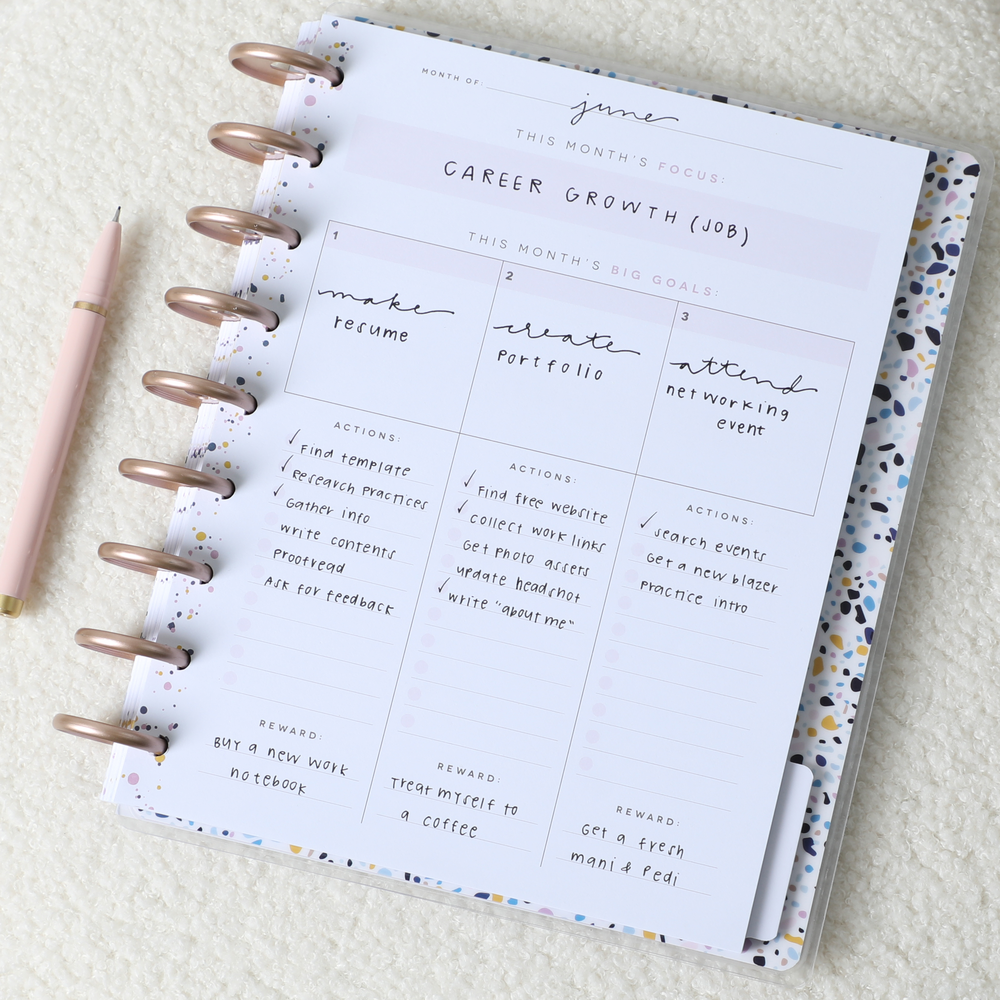 MONTH OF: june
THIS MONTH'S FOCUS:
CAREER GROWTH (JOB)
THIS MONTH'S BIG GOALS:
1
make
resume
ACTIONS:
✓ Find template
✓ Research practices
✓ Gather info
write contents
Proofread
Ask for feedback
REWARD:
Buy a new work
notebook
2
create
Portfolio
ACTIONS:
✓ Find free website
✓ collect work links
Get photo assets
update headshot
✓ write "about me"
REWARD:
Treat myself to
a coffee
3
attend
networking
event
ACTIONS:
✓ search events
Get a new blazer
Practice intro
REWARD:
Get a fresh
mani & Pedi